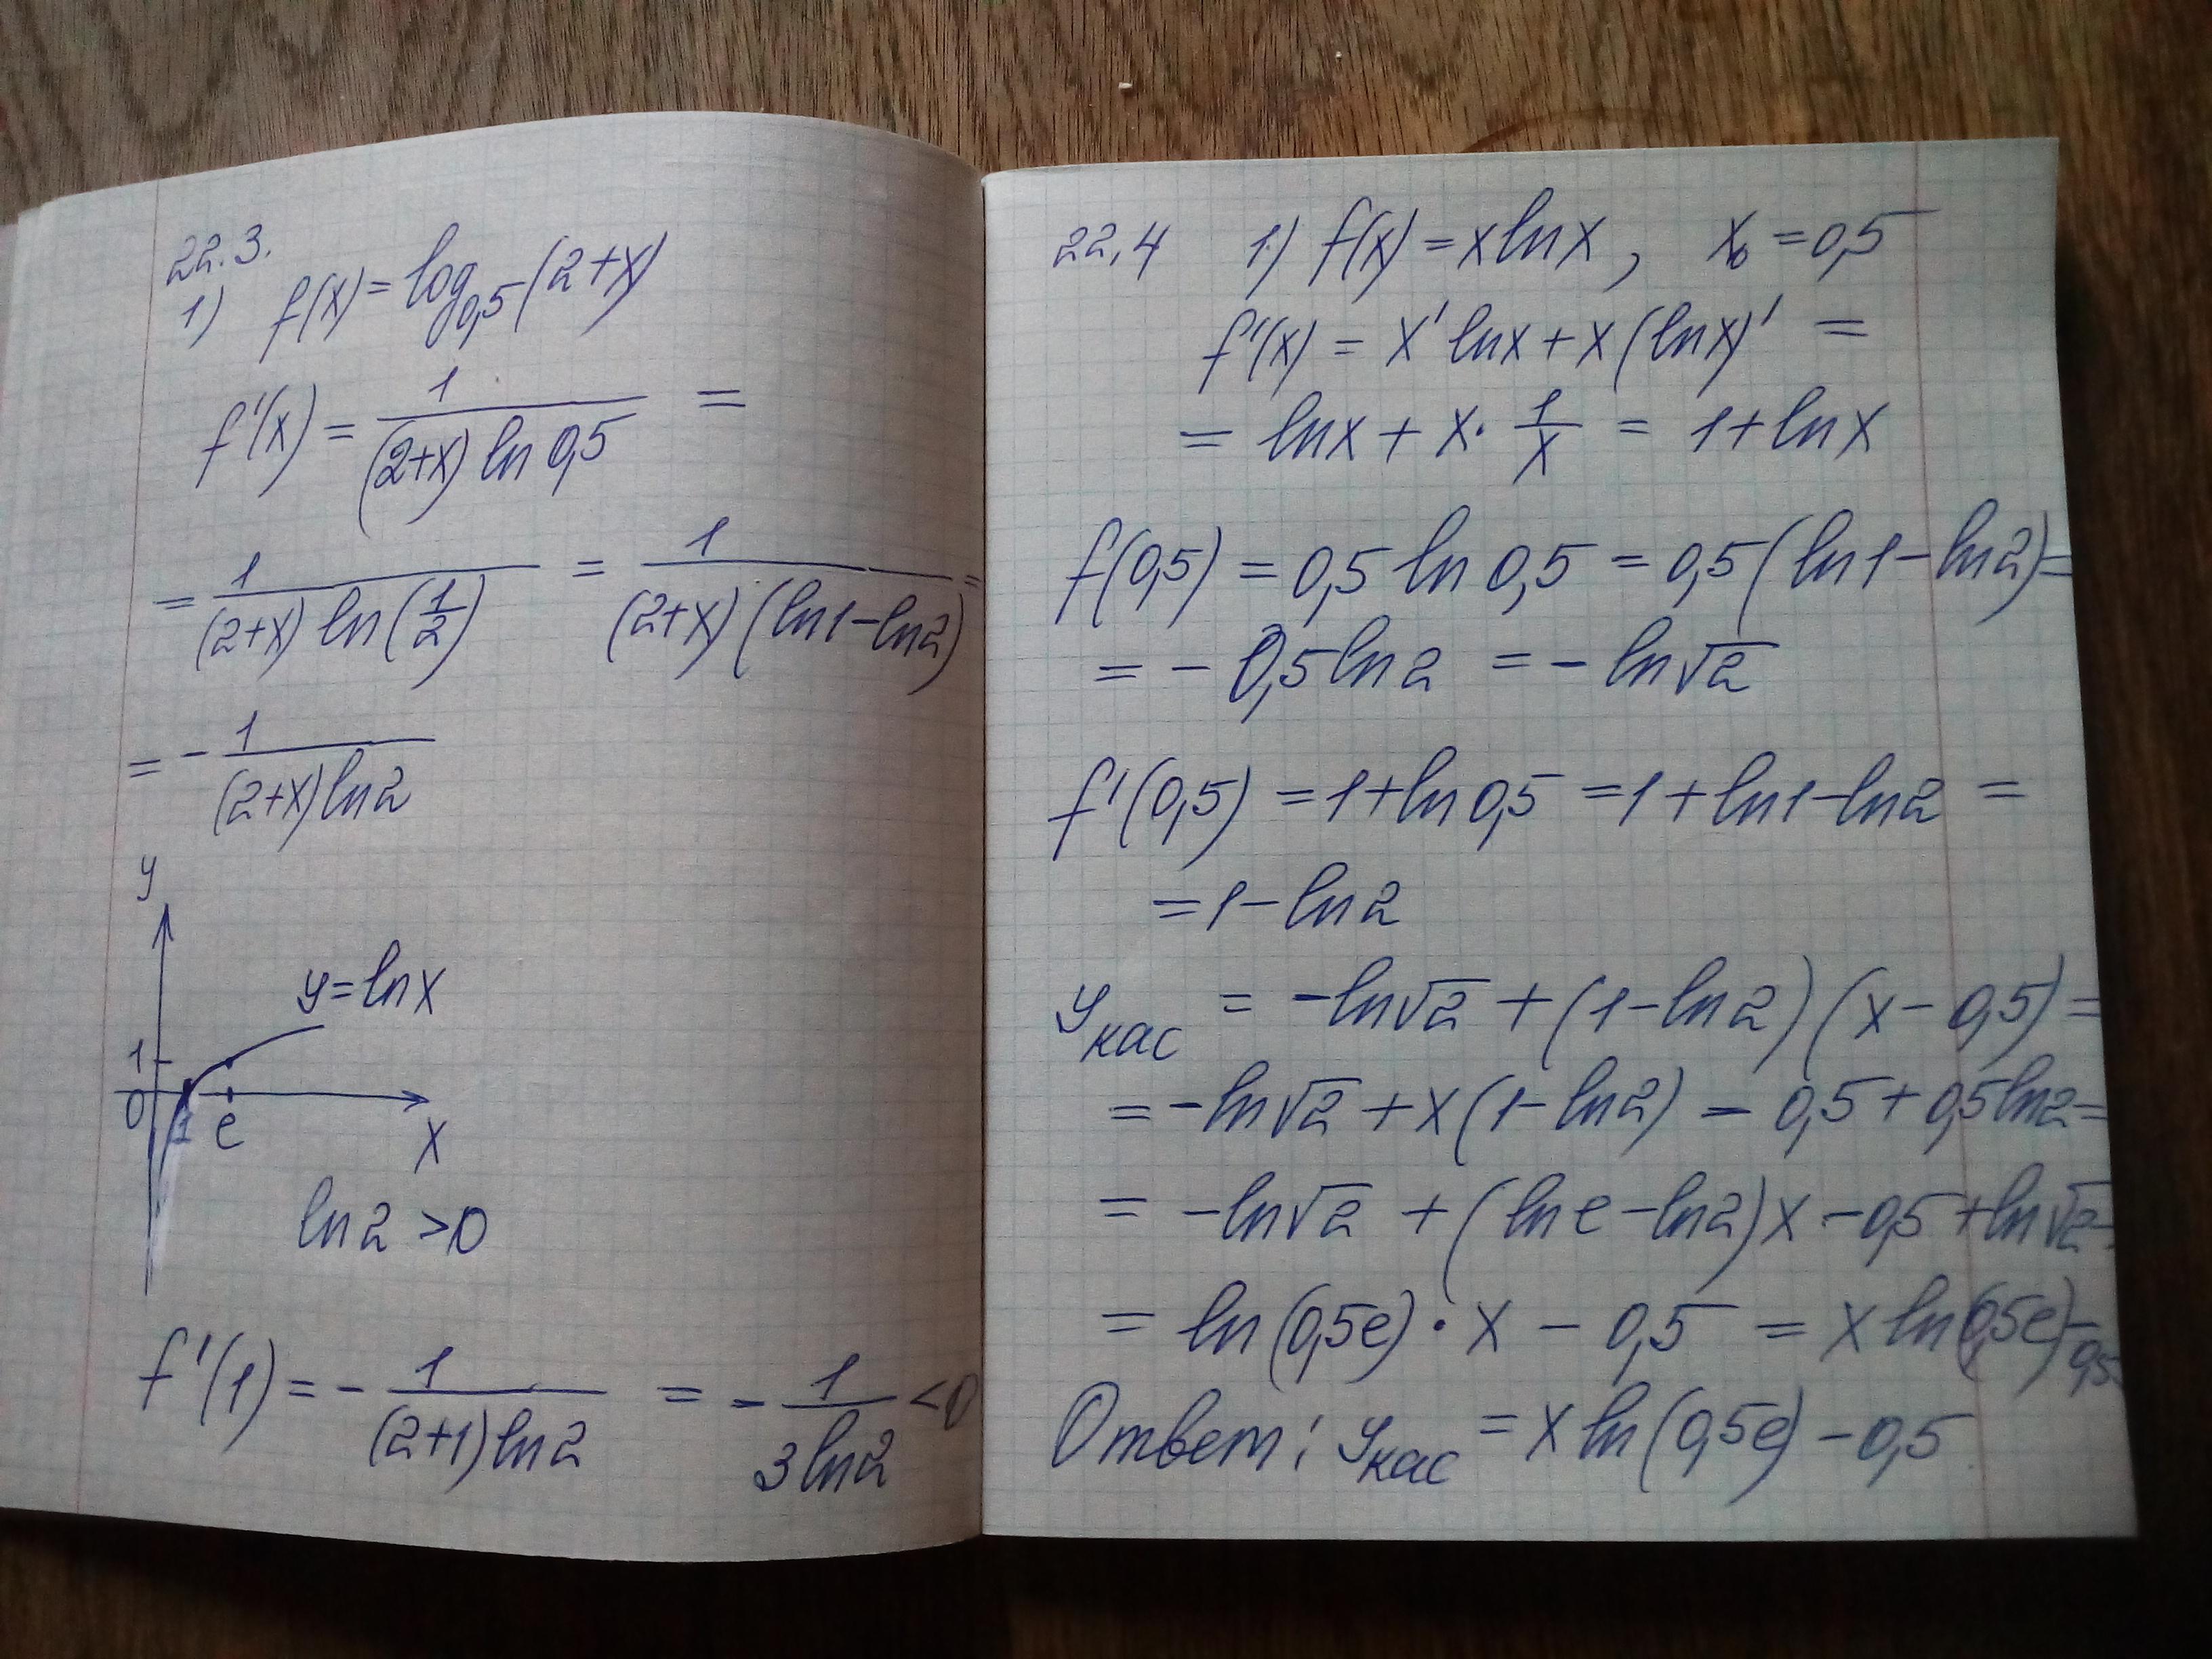 22.3.
1) f(x) = log₀,₅(2+x)
f'(x) = 1/((2+x) ln 0,5) =
= 1/((2+x) ln(1/2)) = 1/((2+x)(ln1-ln2)) =
= - 1/((2+x)ln2)
y
y=lnx
1
0 1 e
x
ln2 >0
f'(1) = - 1/((2+1)ln2) = - 1/(3ln2) <0
22.4 1) f(x) = x lnx, x₀ = 0,5
f'(x) = x' lnx + x (lnx)' =
= lnx + x · 1/x = 1+lnx
f(0,5) = 0,5 ln 0,5 = 0,5(ln1-ln2)=
= - 0,5ln2 = - ln√2
f'(0,5) = 1+ln0,5 = 1+ln1-ln2 =
= 1- ln2
yкас = -ln√2 + (1-ln2)(x-0,5) =
= -ln√2 + x(1-ln2) - 0,5+0,5ln2=
= -ln√2 + (lne-ln2)x -0,5+ln√2=
= ln(0,5e)·x - 0,5 = x ln(0,5e)-0,5
Ответ: yкас = x ln(0,5e) -0,5